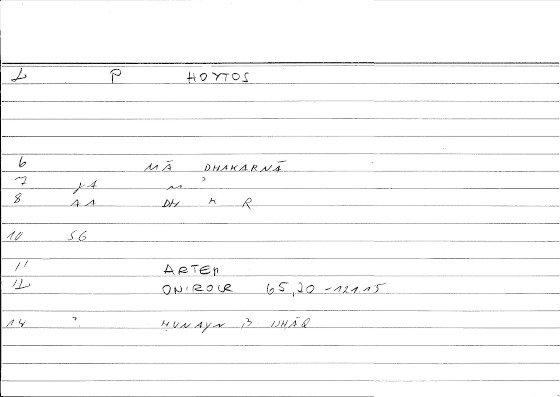 2 P HOYTOS
6 MĀ DHAKARNĀ
7 YA
8 AA DH K R
10 SG
11 ARTEM
12 ONIROCR 65,20-121.15
14 ? ḤUNAYN B ISḤĀQ